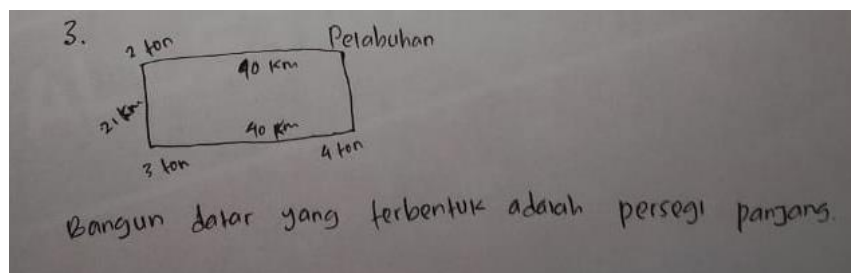 3.
2 ton
Pelabuhan
40 Km
21 Km
40 Km
3 ton
4 ton
Bangun datar yang terbentuk adalah persegi panjang.